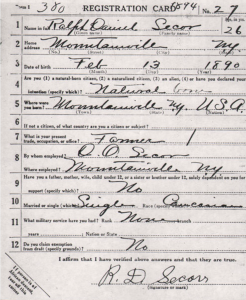 380 REGISTRATION CARD No. 27
1 Name in full Ralph Daniel Secor 26
(Given name) (Family name)
2 Home address Mountainville N.Y.
3 Date of birth Feb 13 1890
(Month) (Day) (Year)
4 Are you (1) a natural-born citizen, (2) a naturalized citizen, (3) an alien, (4) or have you declared your
intention (specify which)? Natural born
5 Where were you born? Mountainville N.Y. U.S.A.
(Town) (State) (Nation)
6 If not a citizen, of what country are you a citizen or subject?
7 What is your present trade, occupation, or office? Farmer
8 By whom employed? Secor
Where employed? Mountainville N.Y.
9 Have you a father, mother, wife, child under 12, or a sister or brother under 12, solely dependent on you for
support (specify which)? No
10 Married or single (which)? Single Race (specify which)? Caucasian
11 What military service have you had? Rank None
years Nation or State
12 Do you claim exemption from draft (specify grounds)? No
I affirm that I have verified above answers and that they are true.
R. D. Secor
(Signature or mark)